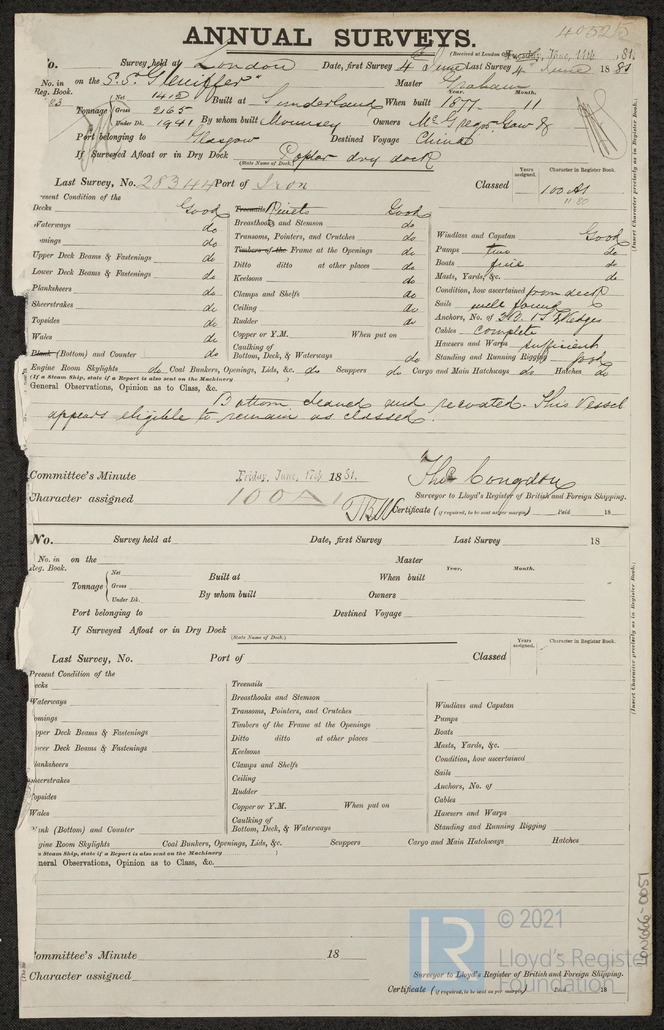 40525
ANNUAL SURVEYS.
(Received at London Office Tuesday, June, 14th, 81.
No. Survey held at London Date, first Survey 4 June Last Survey 4th June 1881
No. in Reg. Book. on the S.S. "Gleniffer" Master Graham
83 Tonnage Net 1412 Gross 2165 Under Dk. 1941 Built at Sunderland When built Year. 1877 Month. 11
By whom built Mounsey Owners McGregor Gow &
Port belonging to Glasgow Destined Voyage China
If Surveyed Afloat or in Dry Dock Poplar dry dock
(State Name of Dock.)
Last Survey, No. 28344 Port of Iron Classed Years assigned. Character in Register Book. 100 A1
11.80
(Insert Character precisely as in Register Book.)
Present Condition of the
Decks Good
Waterways do
Comings do
Upper Deck Beams & Fastenings do
Lower Deck Beams & Fastenings do
Planksheers do
Sheerstrakes do
Topsides do
Wales do
Plank (Bottom) and Counter do
Treenails Rivets Good
Breasthooks and Stemson do
Transoms, Pointers, and Crutches do
Timbers of the Frame at the Openings do
Ditto ditto at other places do
Keelsons do
Clamps and Shelfs do
Ceiling do
Rudder do
Copper or Y.M. When put on
Caulking of Bottom, Deck, & Waterways do
Windlass and Capstan Good
Pumps two do
Boats five do
Masts, Yards, &c. do
Condition, how ascertained from deck
Sails well found
Anchors, No. of
Cables complete
Hawsers and Warps sufficient
Standing and Running Rigging good
Engine Room Skylights do Coal Bunkers, Openings, Lids, &c. do Scuppers do Cargo and Main Hatchways do Hatches do
(If a Steam Ship, state if a Report is also sent on the Machinery )
General Observations, Opinion as to Class, &c.
Bottom cleaned and recoated. This Vessel
appears eligible to remain as classed.
Committee's Minute Friday, June, 17th 1881.
Character assigned 100 A1
Thos Congdon
Surveyor to Lloyd's Register of British and Foreign Shipping.
Certificate (if required, to be sent as per margin) Paid 18
No. Survey held at Date, first Survey Last Survey 18
No. in Reg. Book. on the Master
Tonnage Net Gross Under Dk. Built at When built Year. Month.
By whom built Owners
Port belonging to Destined Voyage
If Surveyed Afloat or in Dry Dock
(State Name of Dock.)
Last Survey, No. Port of Classed Years assigned. Character in Register Book.
(Insert Character precisely as in Register Book.)
Present Condition of the
ecks
Waterways
omings
pper Deck Beams & Fastenings
ower Deck Beams & Fastenings
lanksheers
heerstrakes
opsides
Wales
lank (Bottom) and Counter
Treenails
Breasthooks and Stemson
Transoms, Pointers, and Crutches
Timbers of the Frame at the Openings
Ditto ditto at other places
Keelsons
Clamps and Shelfs
Ceiling
Rudder
Copper or Y.M. When put on
Caulking of Bottom, Deck, & Waterways
Windlass and Capstan
Pumps
Boats
Masts, Yards, &c.
Condition, how ascertained
Sails
Anchors, No. of
Cables
Hawsers and Warps
Standing and Running Rigging
ngine Room Skylights Coal Bunkers, Openings, Lids, &c. Scuppers Cargo and Main Hatchways Hatches
a Steam Ship, state if a Report is also sent on the Machinery )
neral Observations, Opinion as to Class, &c.
ommittee's Minute 18
Character assigned
Surveyor to Lloyd's Register of British and Foreign Shipping.
Certificate (if required, to be sent as per margin) Paid 18
LON666-0051
LR
© 2021
Lloyd's Register
Foundation